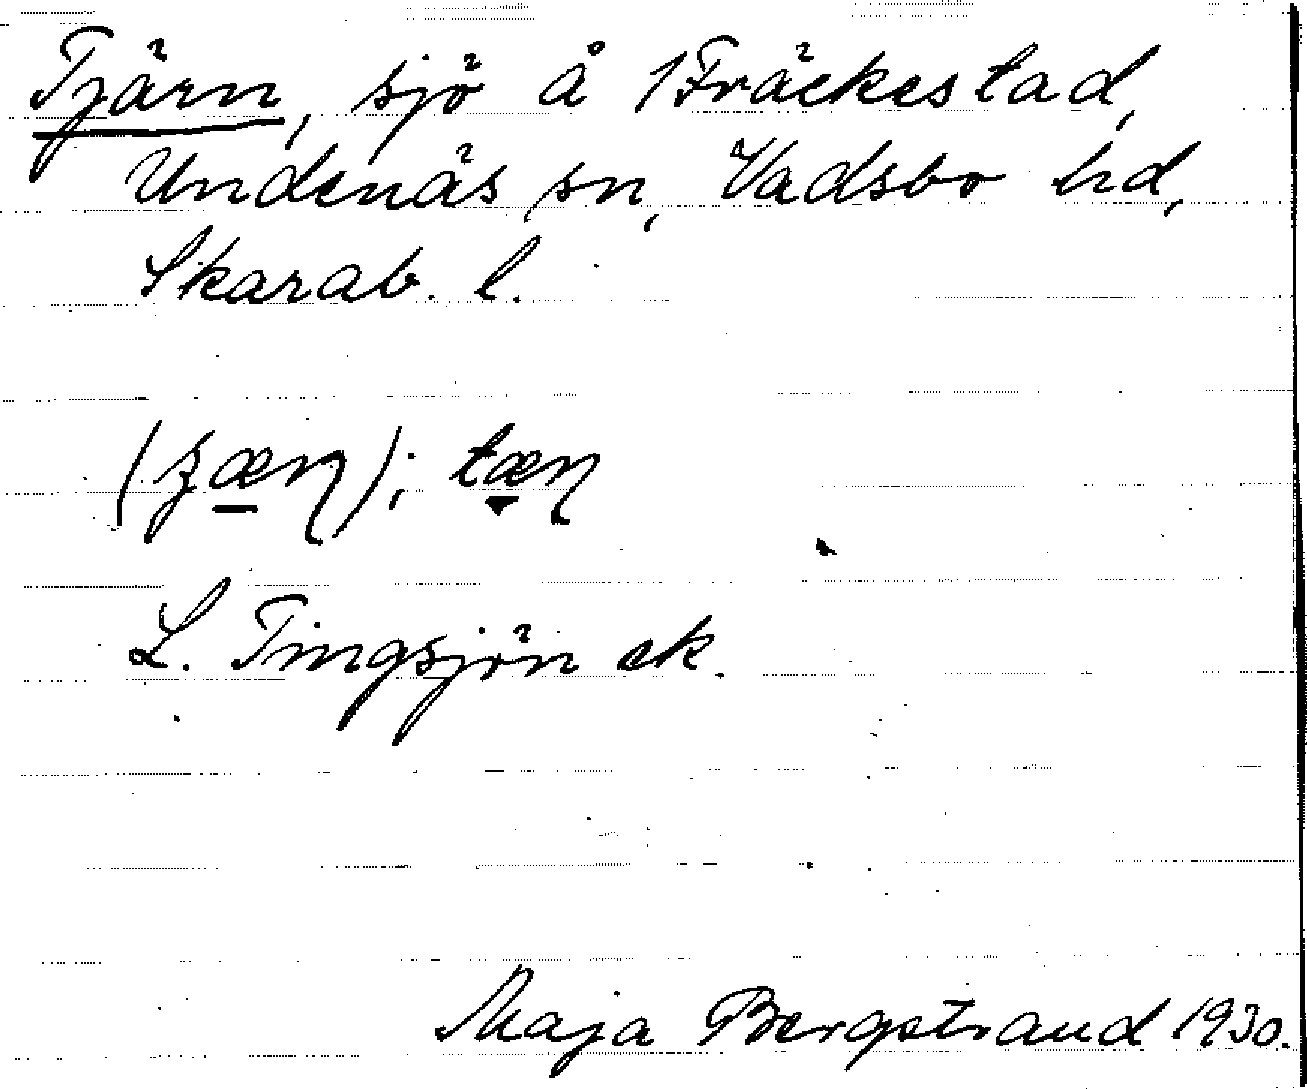 Tjärn, sjö å 1 Fräckestad,
Undenäs sn, Vadsbo hd,
Skarab. l.
L. Tingsjön ek.
Maja Bergstrand 1930.